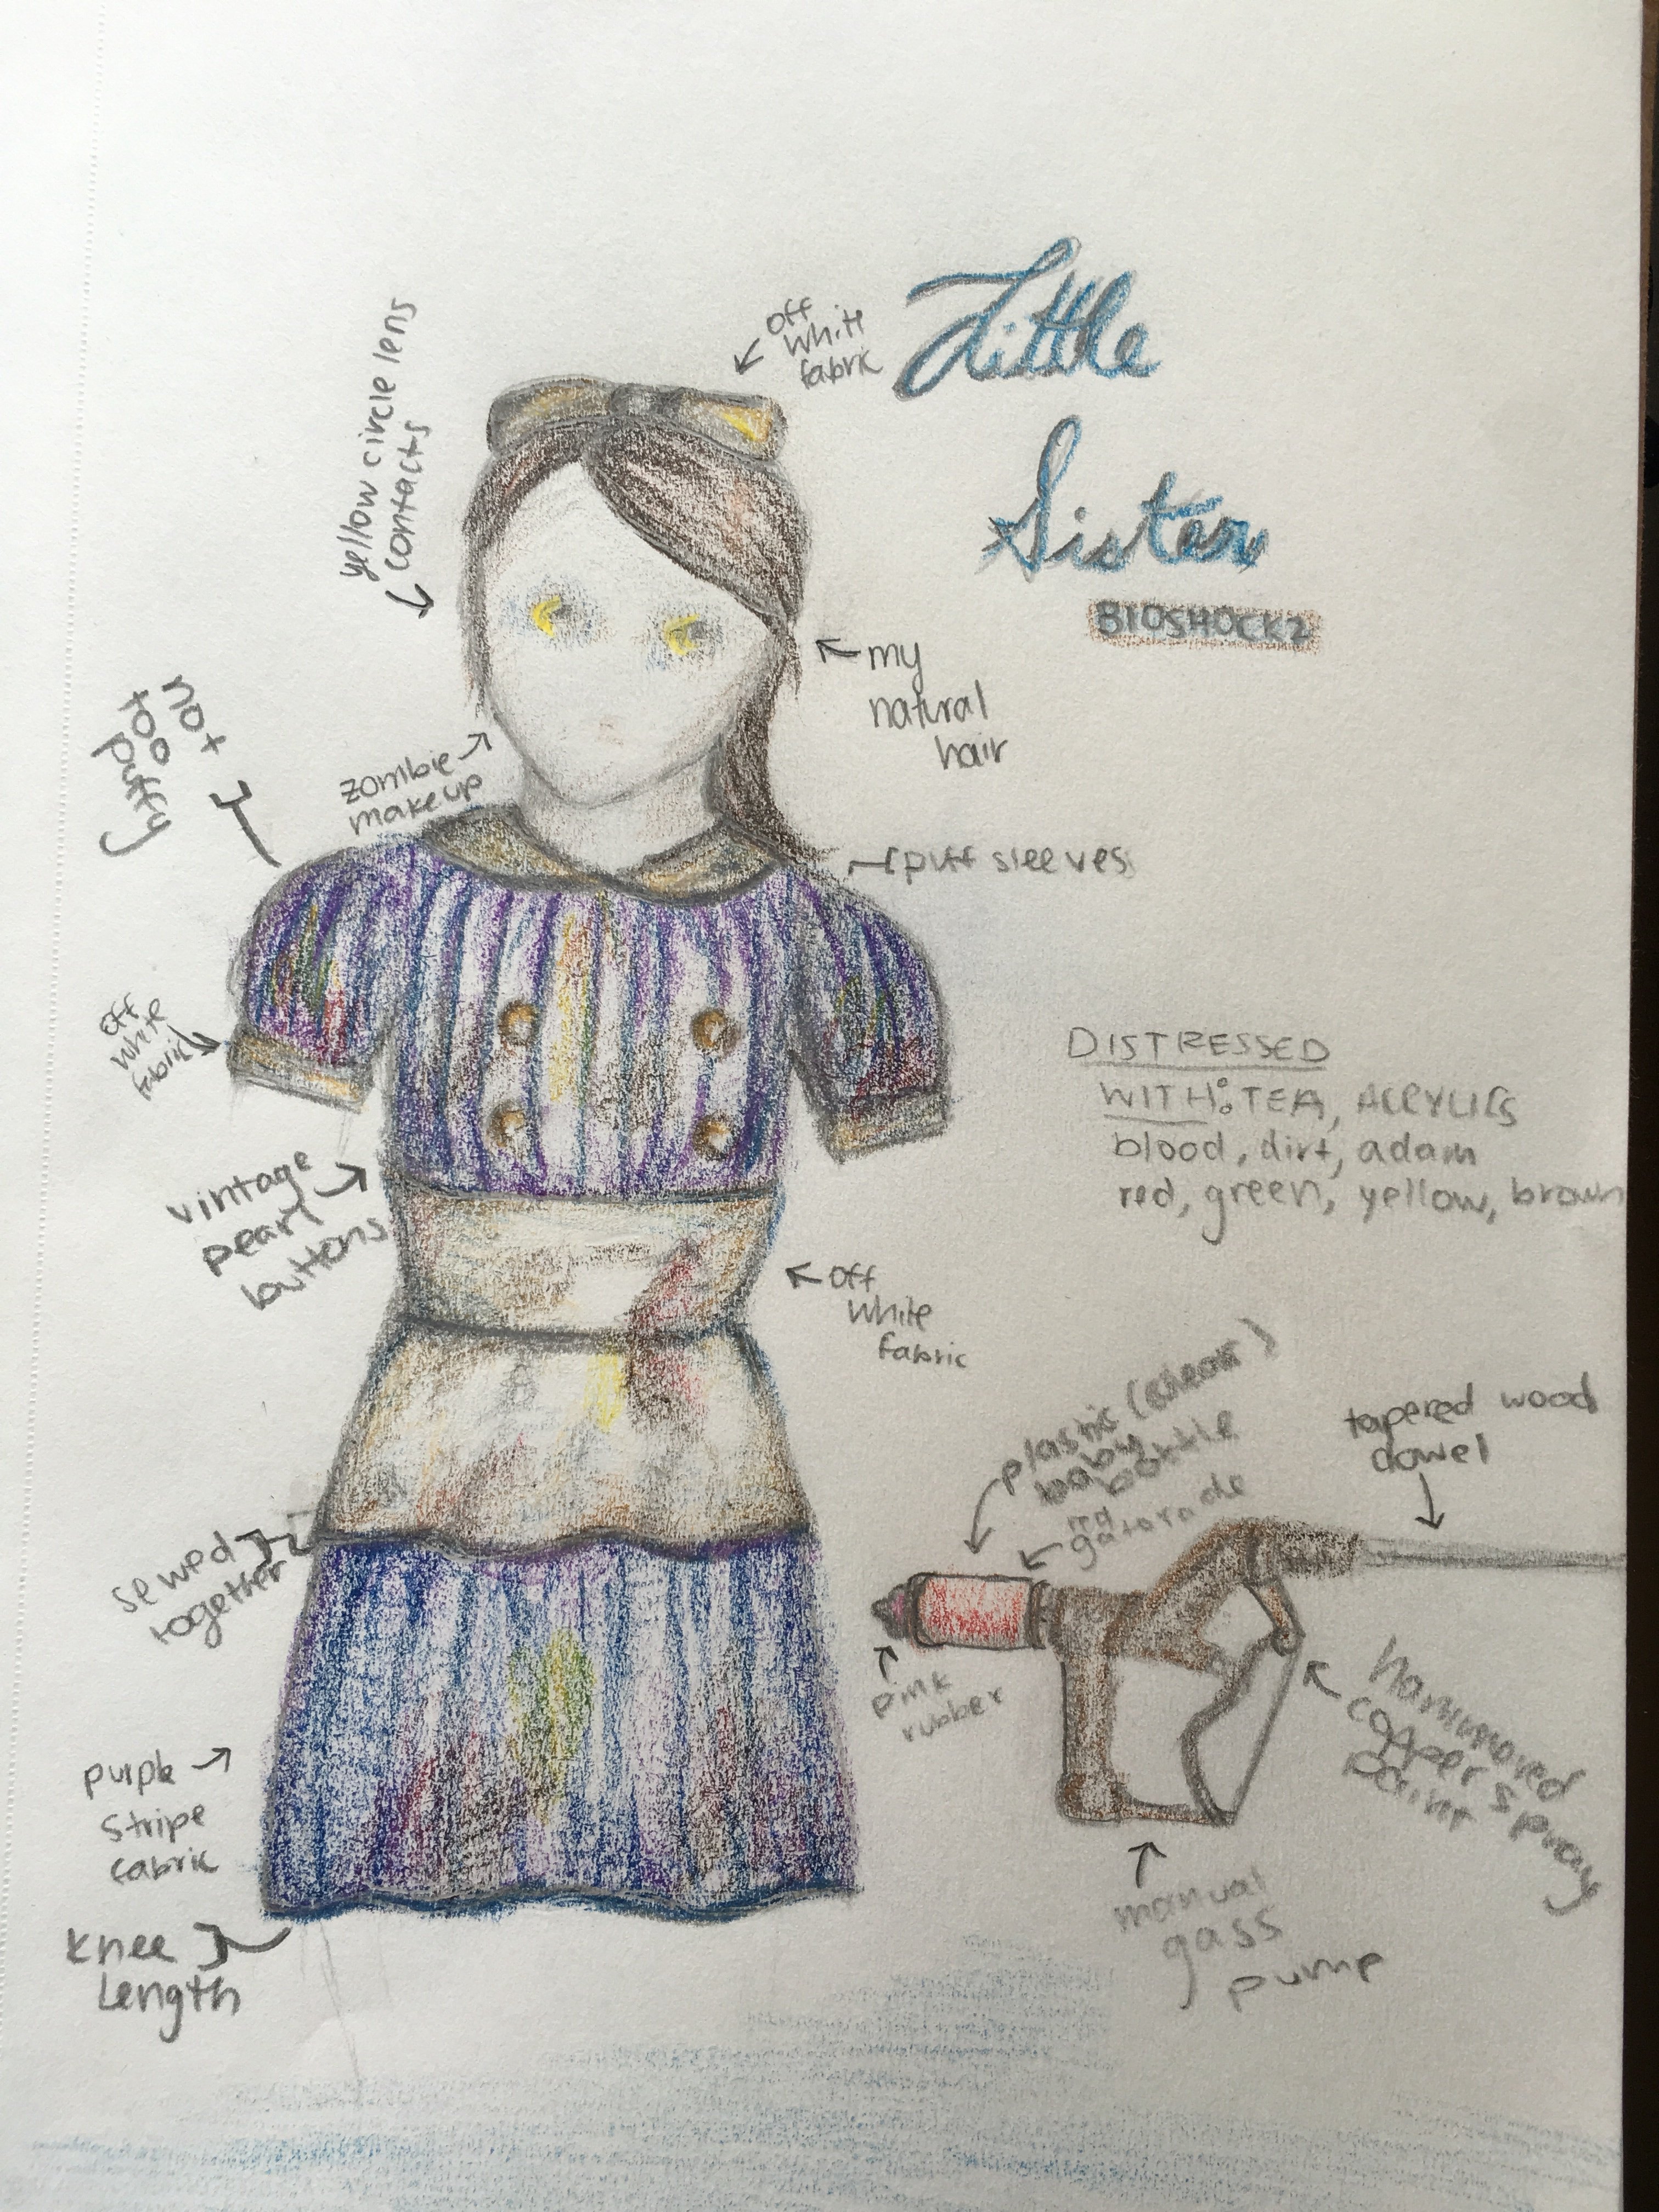 Little
Sister
BIOSHOCK 2
off
white
fabric
yellow circle lens
contacts
my
natural
hair
not
too
puffy
zombie
makeup
puff sleeves
off
white
fabric
DISTRESSED
WITH: TEA, ACRYLICS
blood, dirt, adam
red, green, yellow, brown
vintage
pearl
buttons
off
white
fabric
plastic (clear)
baby
bottle
red
gatorade
tapered wood
dowel
sewed
together
pink
rubber
hammored
copper spray
paint
purple
stripe
fabric
manual
gass
pump
knee
length